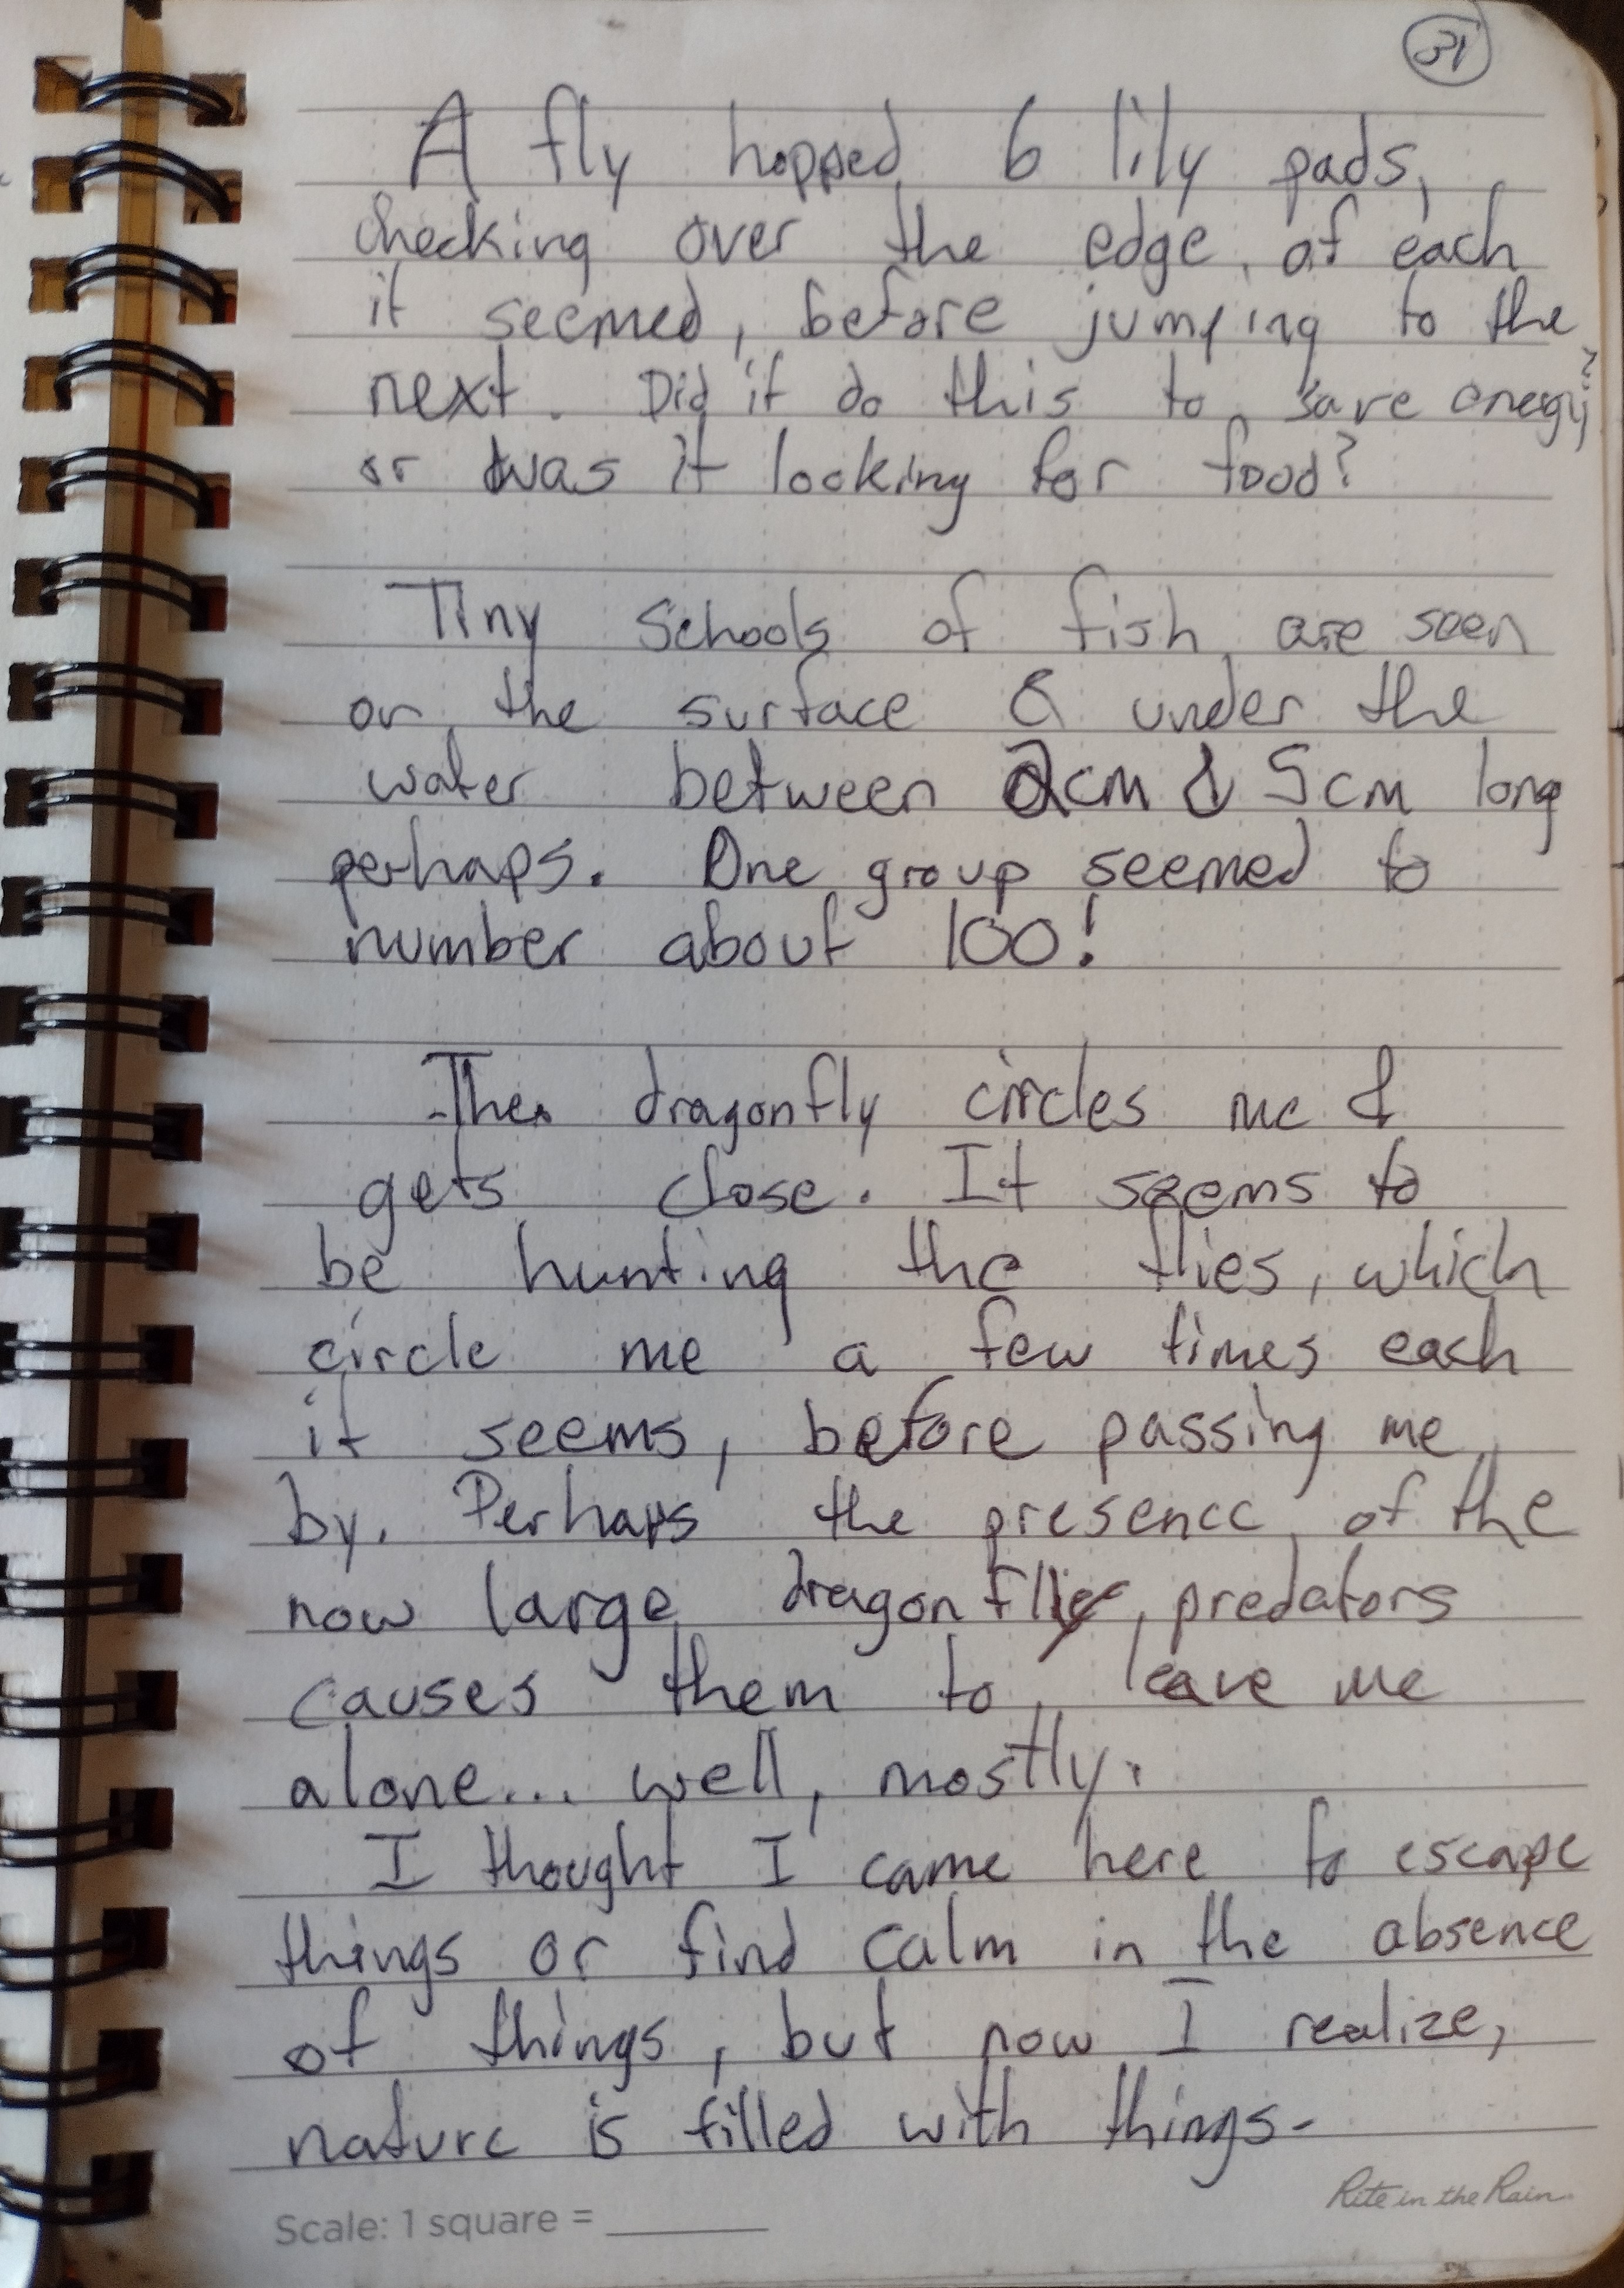 31
A fly hopped 6 lily pads,
checking over the edge of each
it seemed, before jumping to the
next. Did it do this to save energy?
or was it looking for food?
Tiny Schools of fish are seen
on the surface & under the
water between 2cm & 5cm long
perhaps. One group seemed to
number about 100!
The dragonfly circles me &
gets close. It seems to
be hunting the flies, which
circle me a few times each
it seems, before passing me
by. Perhaps the presence of the
now large dragonfly predators
causes them to leave me
alone... well, mostly.
I thought I came here to escape
things or find calm in the absence
of things, but now I realize,
nature is filled with things.
Scale: 1 square = ______
Rite in the Rain.